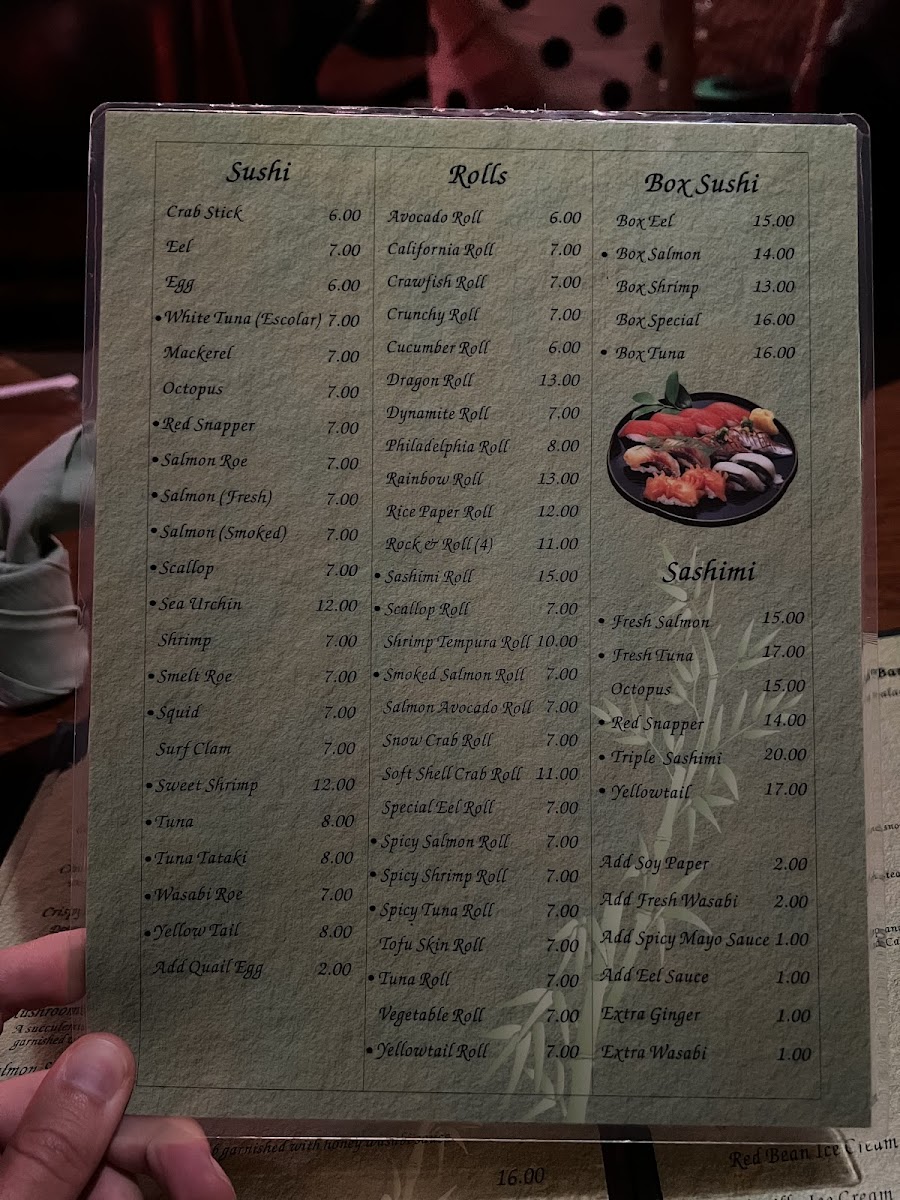 Sushi
Crab Stick 6.00
Eel 7.00
Egg 6.00
• White Tuna (Escolar) 7.00
Mackerel 7.00
Octopus 7.00
• Red Snapper 7.00
• Salmon Roe 7.00
• Salmon (Fresh) 7.00
• Salmon (Smoked) 7.00
• Scallop 7.00
• Sea Urchin 12.00
Shrimp 7.00
• Smelt Roe 7.00
• Squid 7.00
Surf Clam 7.00
• Sweet Shrimp 12.00
• Tuna 8.00
• Tuna Tataki 8.00
• Wasabi Roe 7.00
• Yellow Tail 8.00
Add Quail Egg 2.00
Rolls
Avocado Roll 6.00
California Roll 7.00
Crawfish Roll 7.00
Crunchy Roll 7.00
Cucumber Roll 6.00
Dragon Roll 13.00
Dynamite Roll 7.00
Philadelphia Roll 8.00
Rainbow Roll 13.00
Rice Paper Roll 12.00
Rock & Roll (4) 11.00
• Sashimi Roll 15.00
• Scallop Roll 7.00
Shrimp Tempura Roll 10.00
• Smoked Salmon Roll 7.00
Salmon Avocado Roll 7.00
Snow Crab Roll 7.00
Soft Shell Crab Roll 11.00
Special Eel Roll 7.00
• Spicy Salmon Roll 7.00
• Spicy Shrimp Roll 7.00
• Spicy Tuna Roll 7.00
Tofu Skin Roll 7.00
• Tuna Roll 7.00
Vegetable Roll 7.00
• Yellowtail Roll 7.00
Box Sushi
Box Eel 15.00
• Box Salmon 14.00
Box Shrimp 13.00
Box Special 16.00
• Box Tuna 16.00
Sashimi
• Fresh Salmon 15.00
• Fresh Tuna 17.00
Octopus 15.00
• Red Snapper 14.00
• Triple Sashimi 20.00
• Yellowtail 17.00
Add Soy Paper 2.00
Add Fresh Wasabi 2.00
Add Spicy Mayo Sauce 1.00
Add Eel Sauce 1.00
Extra Ginger 1.00
Extra Wasabi 1.00
garnished with honey
16.00
Red Bean Ice Cream
Ice Cream